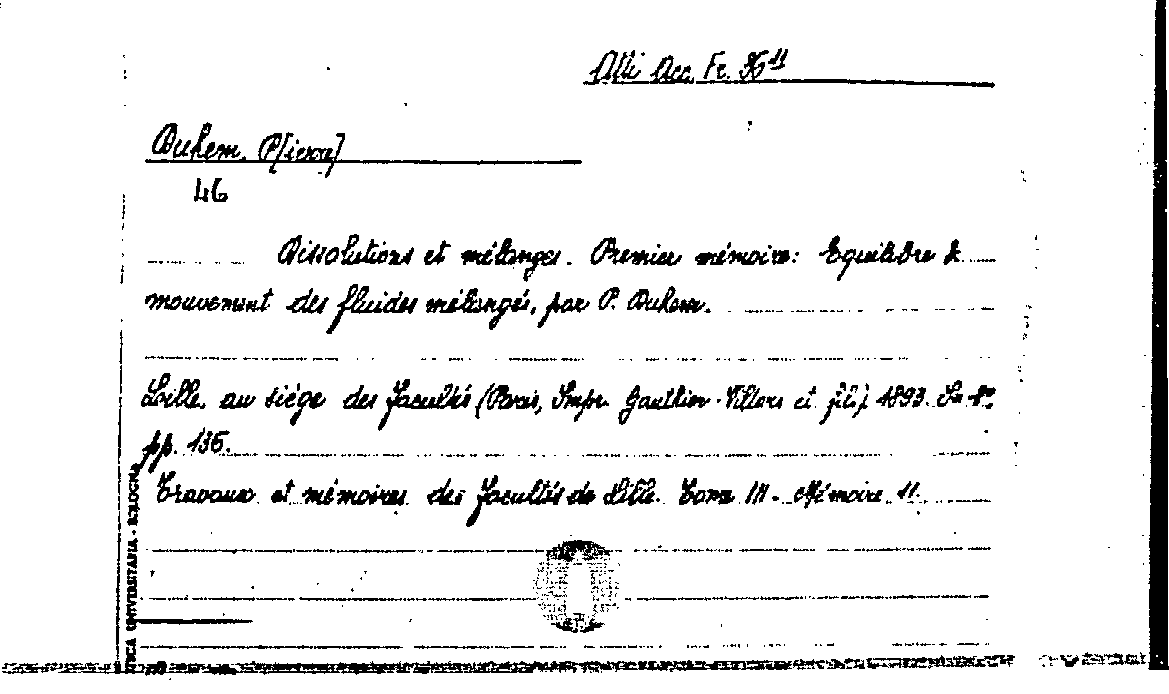 Atti Acc. Fr. 36¹¹
Duhem, P[ierre]
46
Dissolutions et mélanges. Premier mémoire: Equilibre &
mouvement des fluides mélangés, par P. Duhem.
Lille, au siège des facultés (Paris, Impr. Gauthier-Villars et fils) 1893. In-4º
pp. 136.
Travaux et mémoires des facultés de Lille. Tome III. Mémoire 11.
UNIVERSITARIA - BOLOGNA